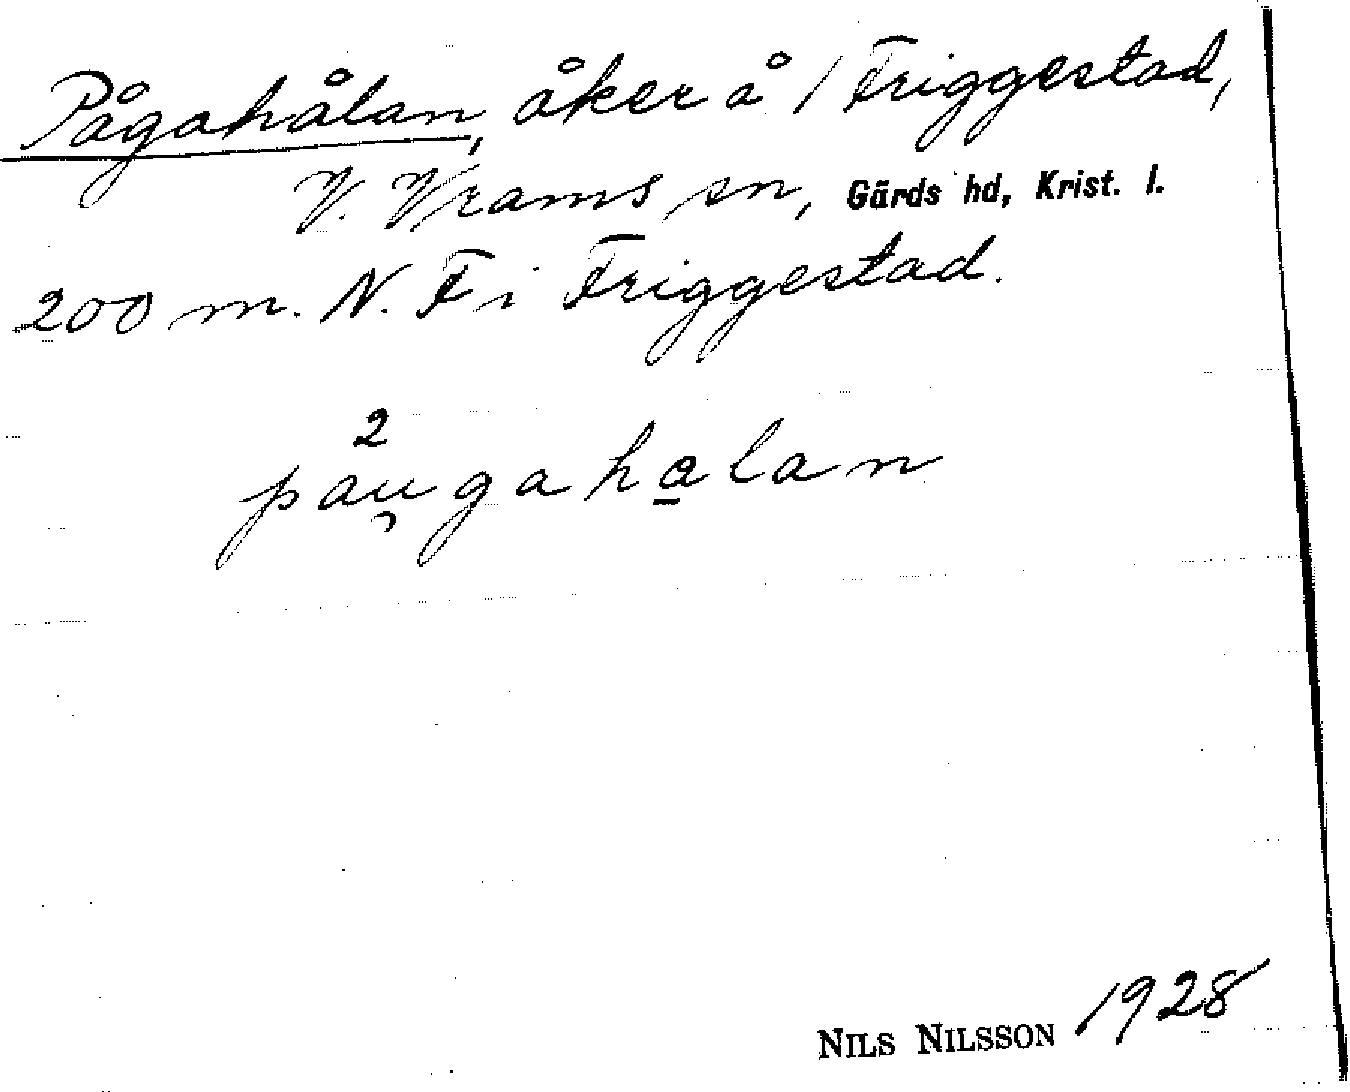 Pågahålan, åker å / Friggestad,
V. Vrams sn, Gärds hd, Krist. l.
200 m. N. F i Friggestad.
2
pau̯gahalan
NILS NILSSON 1928